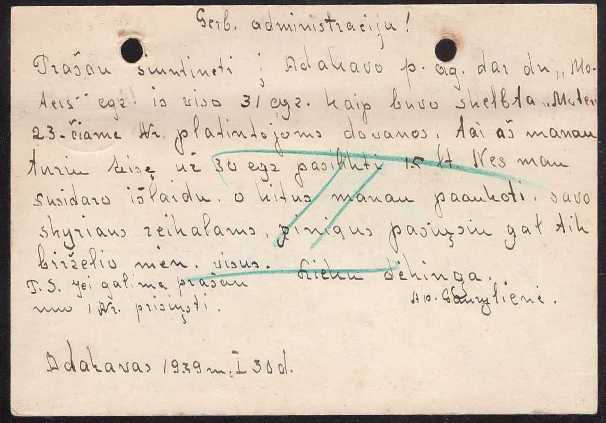 Gerb. administracija!
Prašau siuntineti į Adakavo p. ag. dar du „Mo-
teris" egz. is viso 31 egz. kaip buvo skelbta „Moter
23-čiame Nr. platintojoms dovanos, tai aš manau
turiu teisę už 30 egz pasilikti 15 lt. Nes man
susidaro išlaidu. o kitus manau paaukoti savo
skyriaus reikalams, pinigus pasiųsiu gal tik
birželio mėn. visus. Lieku dėkinga.
P.S. jei galima prašau
nuo 1 Nr. prisiųsti.
Adakavas 1939 m. I 30 d.